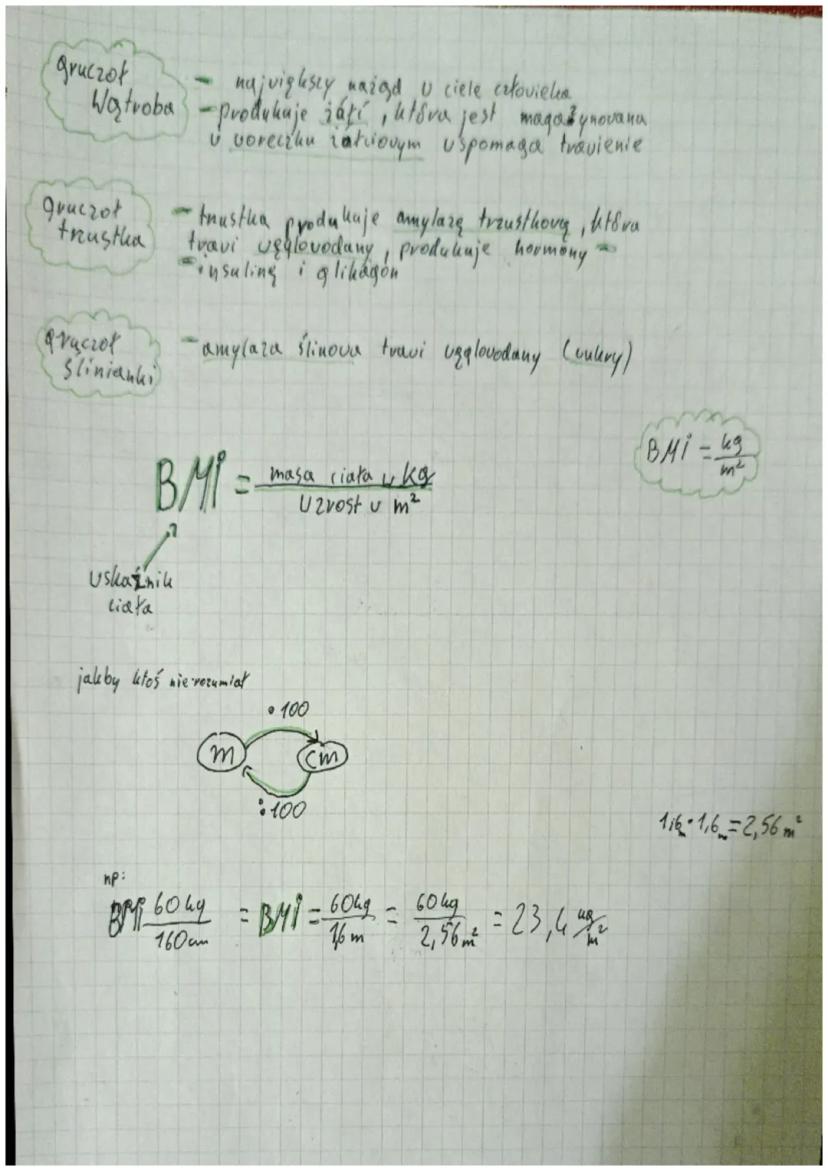 gruczoł
wątroba
- największy nażąd w ciele człowieka
- produkuje żółć, która jest magazynowana
w woreczku żółciowym wspomaga trawienie
gruczoł
trzustka
- trzustka produkuje amylazę trzustkową, która
trawi węglowodany, produkuje hormony -
- insulinę i glikagon
gruczoł
ślinianki
- amylaza ślinowa trawi węglowodany (cukry)
BMI = kg/m²
BMI = masa ciała w kg / wzrost w m²
wskaźnik
ciała
jakby ktoś nie rozumiał
• 100
m cm
: 100
1,6m • 1,6m = 2,56 m²
np:
BMI 60kg/160cm = BMI = 60kg/1,6m = 60kg/2,56m² = 23,4 kg/m²